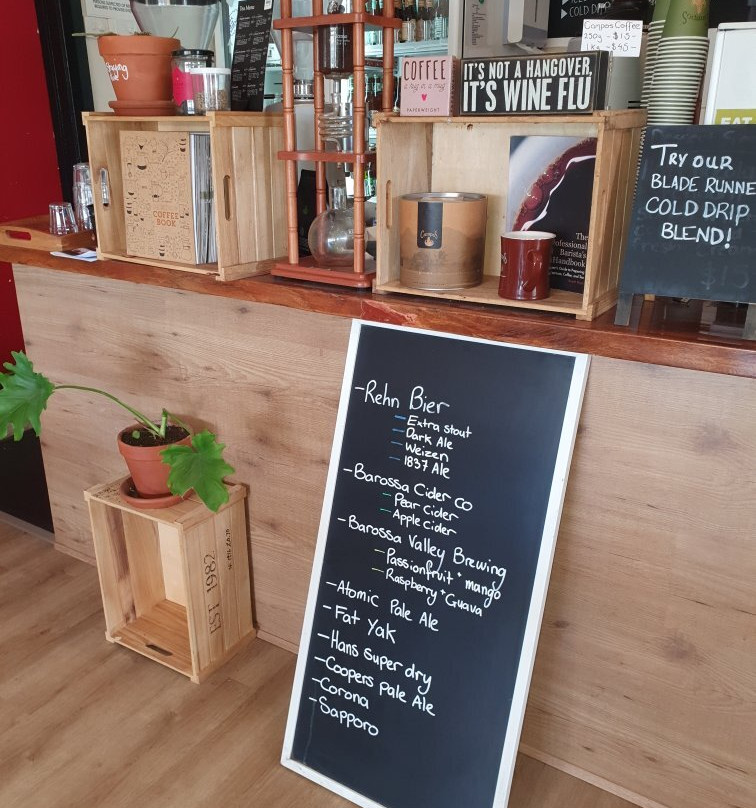 COLD DRIP
Campos Coffee
250g - $15 -
1kg - $45 -
COFFEE
a hug in a mug
PAPERWEIGHT
IT'S NOT A HANGOVER,
IT'S WINE FLU
EAT
TRY OUR
BLADE RUNNE
COLD DRIP
BLEND!
COFFEE
BOOK
Campos
The
Professional
Barista's
Handbook
EST 1982
-Rehn Bier
-Extra stout
-Dark Ale
-Weizen
-1837 Ale
-Barossa Cider Co
-Pear Cider
-Apple Cider
-Barossa Valley Brewing
-Passionfruit + mango
-Raspberry + Guava
-Atomic Pale Ale
-Fat Yak
-Hans super dry
-Coopers Pale Ale
-Corona
-Sapporo